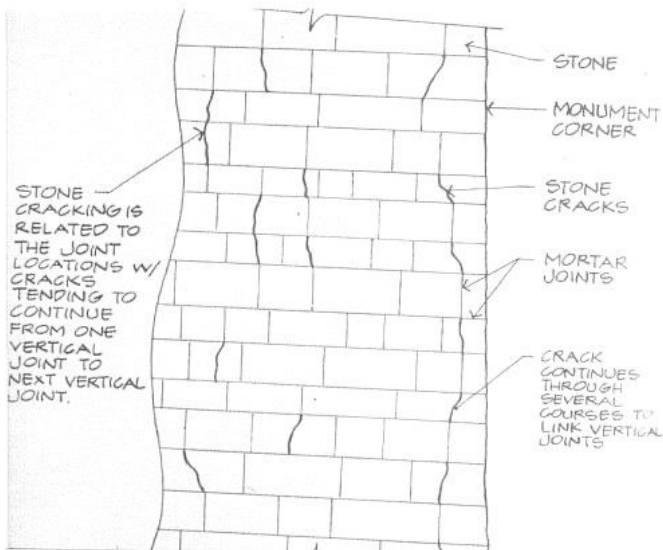 STONE
MONUMENT
CORNER
STONE
CRACKING IS
RELATED TO
THE JOINT
LOCATIONS W/
CRACKS
TENDING TO
CONTINUE
FROM ONE
VERTICAL
JOINT TO
NEXT VERTICAL
JOINT.
STONE
CRACKS
MORTAR
JOINTS
CRACK
CONTINUES
THROUGH
SEVERAL
COURSES TO
LINK VERTICAL
JOINTS